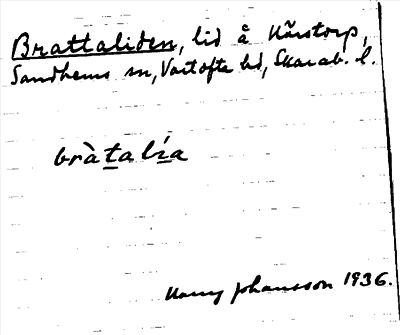 Brattaliden, lid å Kårstorp,
Sandhems sn, Vartofte hd, Skarab. l.
bràtalía
Harry Johansson 1936.